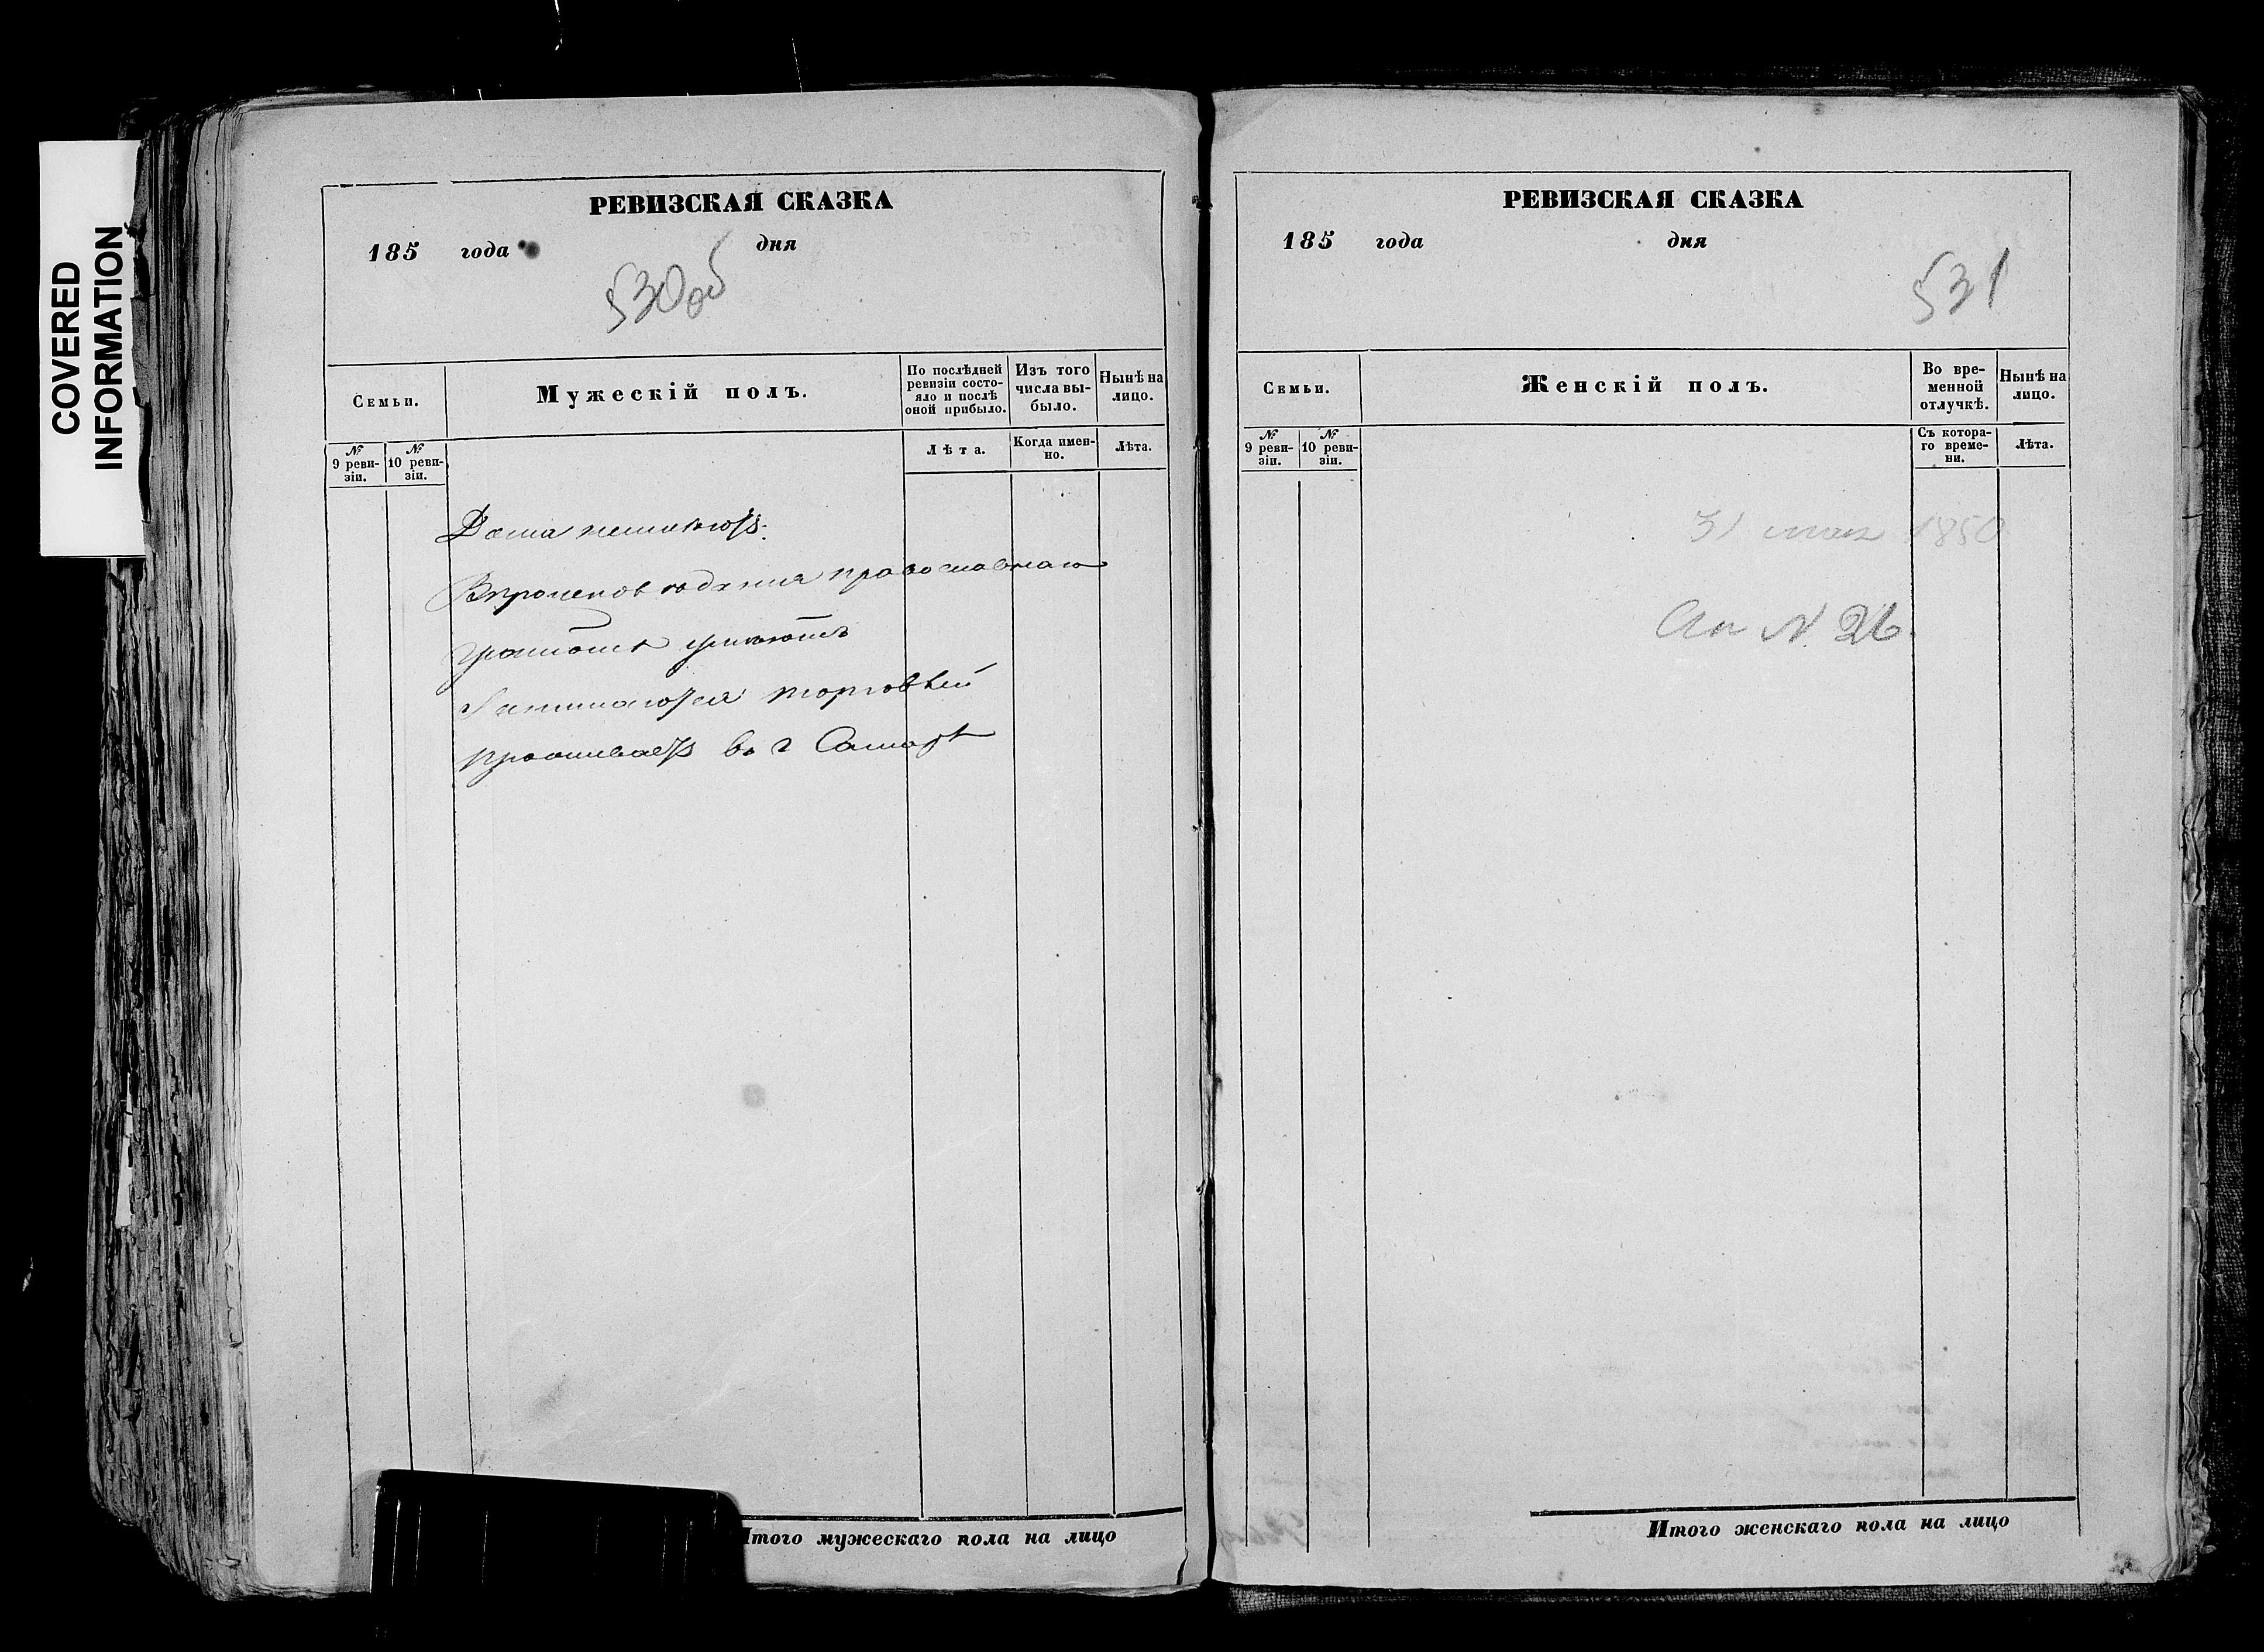 COVERED
INFORMATION
РЕВИЗСКАЯ СКАЗКА
185 года дня
530об
Семьи.
Мужескій полъ.
По послѣдней ревизіи состояло и послѣ оной прибыло.
Изъ того числа выбыло.
Нынѣ на лицо.
№ 9 ревизіи.
№ 10 ревизіи.
Лѣта.
Когда именно.
Лѣта.
Дома неимеютъ.
православнаго
грамоте умеютъ
Занимаются торговлей
проживаетъ въ г Самарѣ
Итого мужескаго пола на лицо
РЕВИЗСКАЯ СКАЗКА
185 года дня
531
Семьи.
Женскій полъ.
Во временной отлучкѣ.
Нынѣ на лицо.
№ 9 ревизіи.
№ 10 ревизіи.
Съ котораго времени.
Лѣта.
31 мая 1850
N. 26.
Итого женскаго пола на лицо